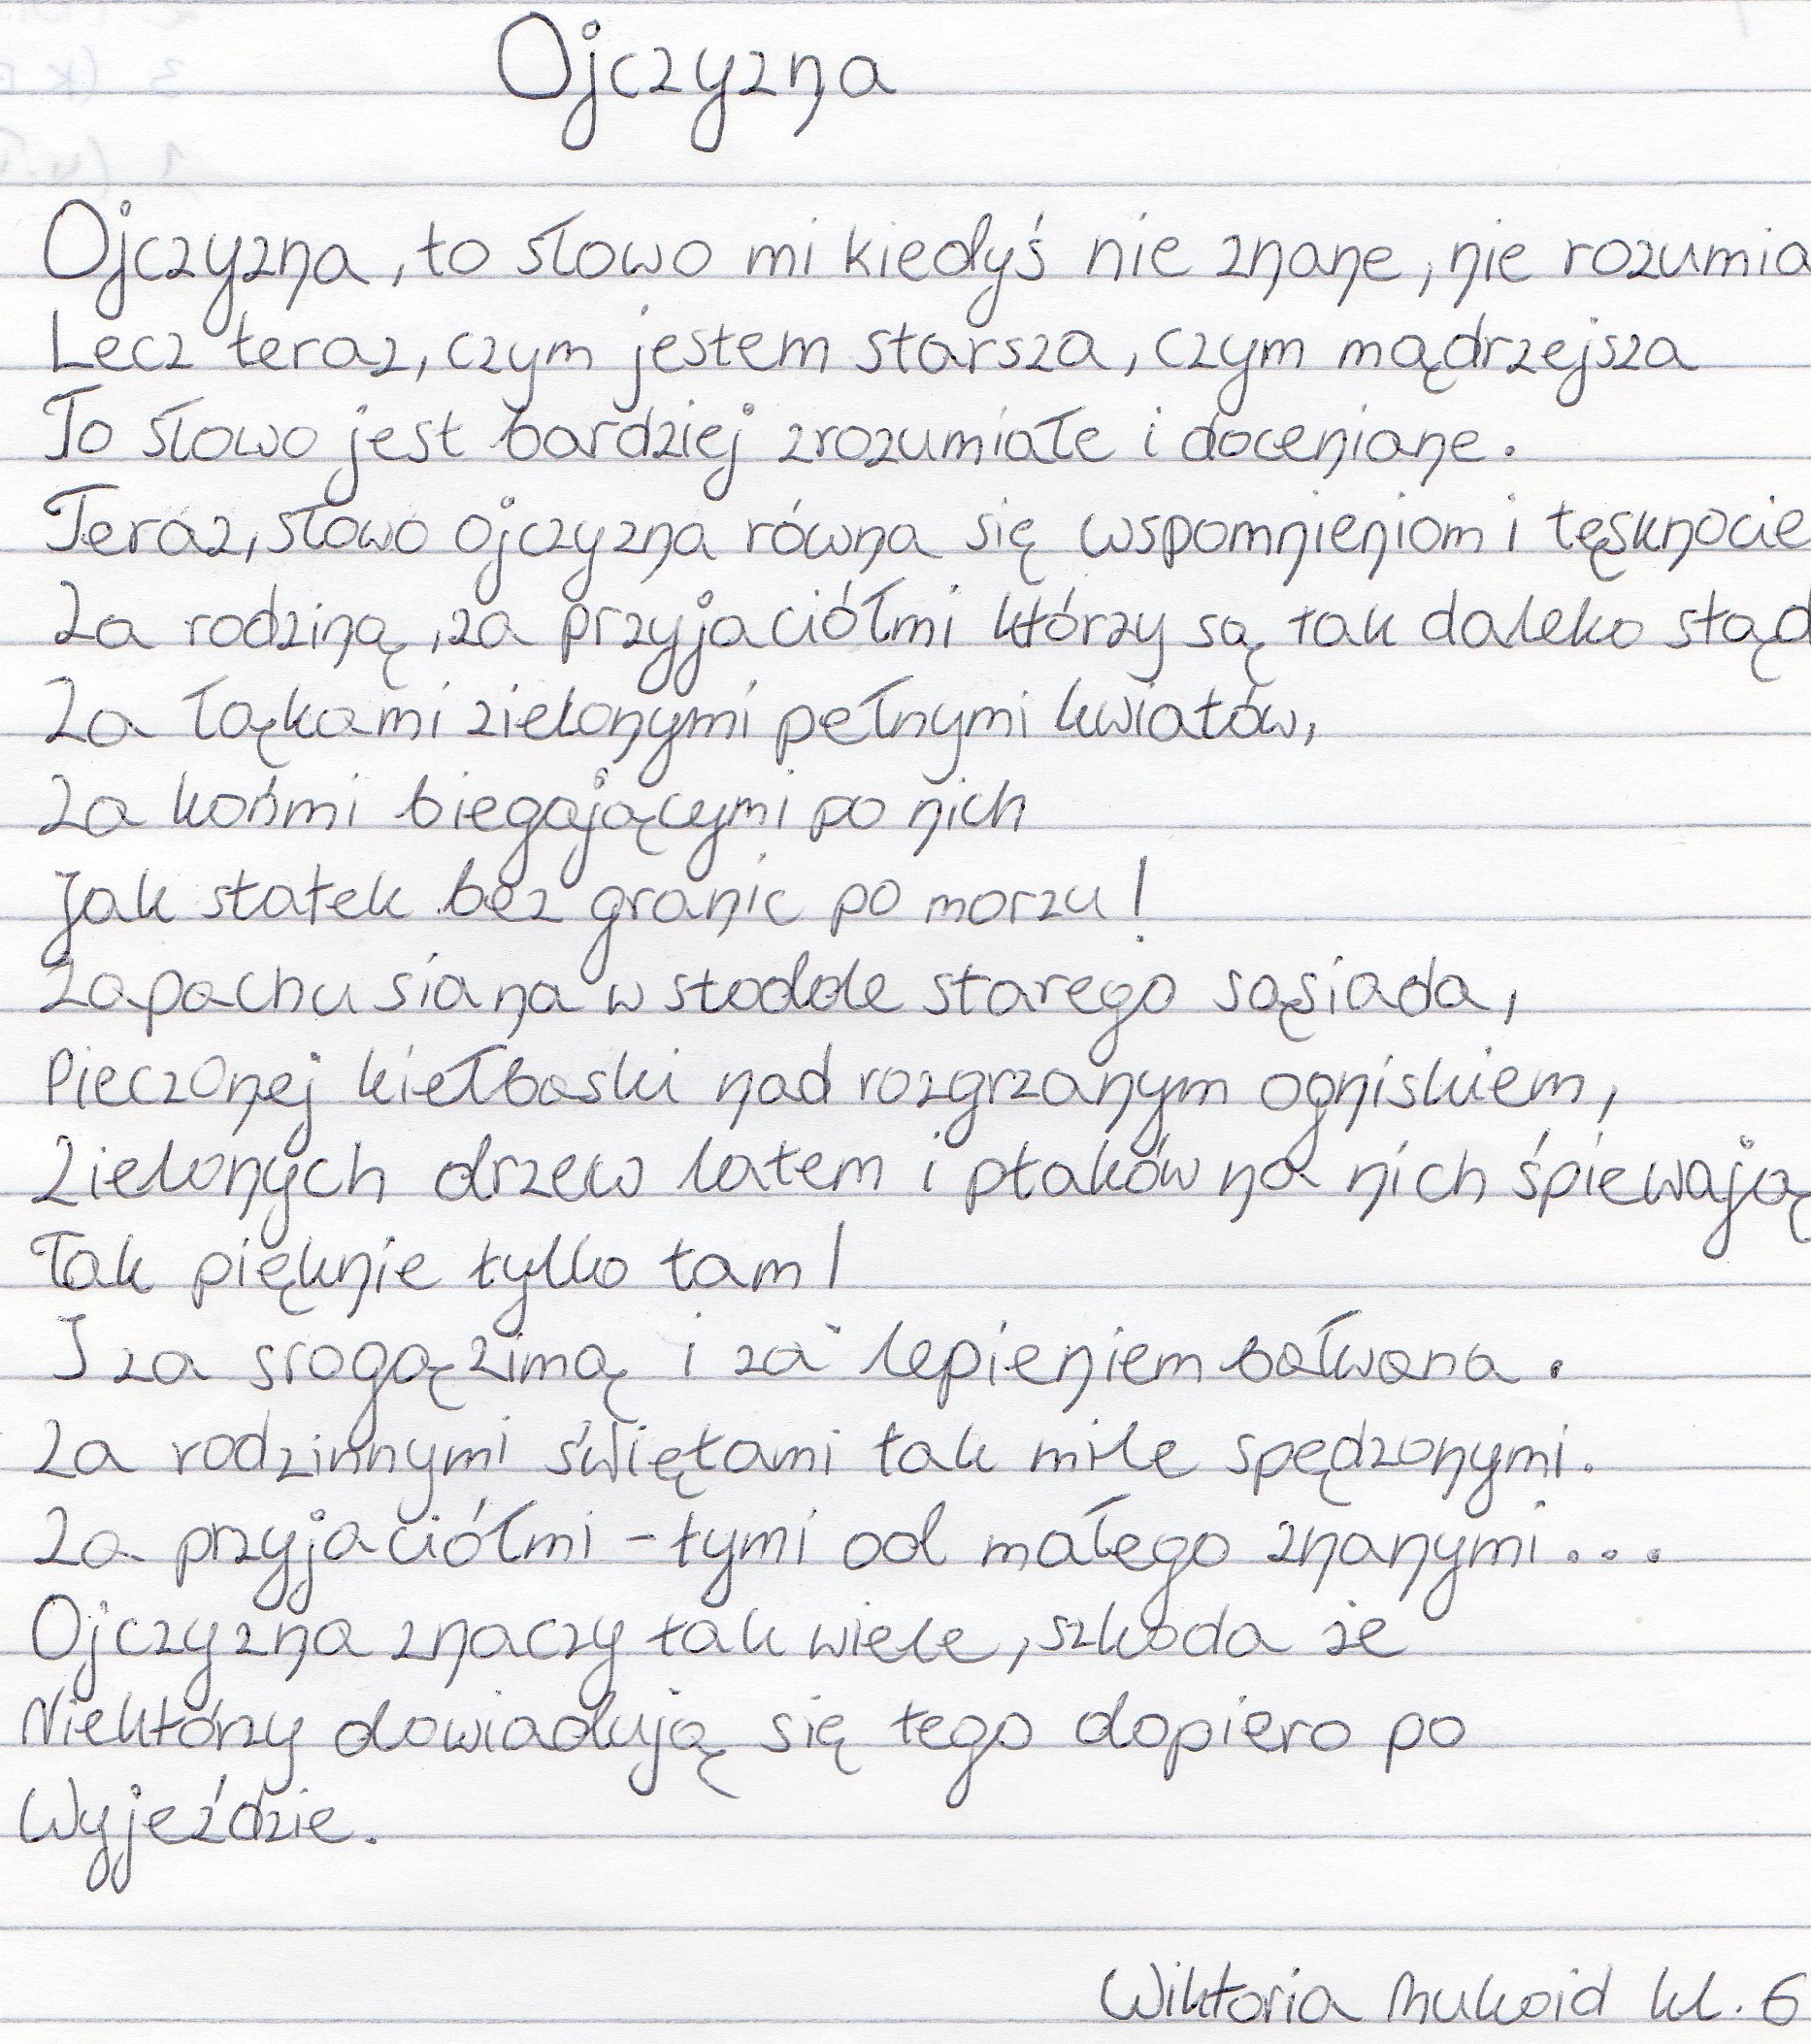 Ojczyzna
Ojczyzna, to słowo mi kiedyś nie znane, nie rozumia
Lecz teraz, czym jestem starsza, czym mądrzejsza
To słowo jest bardziej zrozumiałe i doceniane.
Teraz, słowo ojczyzna równa się wspomnieniom i tęsknocie
Za rodziną, za przyjaciółmi którzy są tak daleko stąd
Za łąkami zielonymi pełnymi kwiatów,
Za końmi biegającymi po nich
Jak statek bez granic po morzu!
Zapachu siana w stodole starego sąsiada,
Pieczonej kiełbaski nad rozgrzanym ogniskiem,
Zielonych drzew latem i ptaków na nich śpiewają
Tak pięknie tylko tam!
I za srogą zimą i za lepieniem bałwana.
Za rodzinnymi świętami tak mile spędzonymi.
Za przyjaciółmi - tymi od małego znanymi...
Ojczyzna znaczy tak wiele, szkoda że
Niektórzy dowiadują się tego dopiero po
Wyjeździe.
Wiktoria Mukoid kl. 6